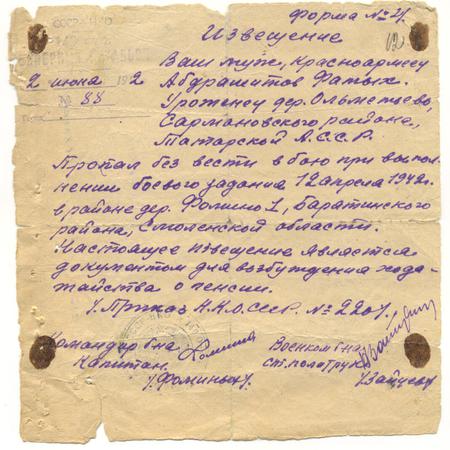 форма № 2/.
Извещение
2 июня 1942
№ 88
Ваш муж, Красноармеец
Абдрашитов Фатых.
Уроженец дер. Ольметьево,
Сармановского района,
Татарской А.С.С.Р.
Пропал без вести в бою при выпол-
нении боевого задания 12 апреля 1942 г.
в районе дер. Фомино 1, Баратинского
района, Смоленской области.
Настоящее извещение является
документом для возбуждения хода-
тайства о пенсии.
/. Приказ Н.К.О. СССР. № 220/.
Командир б-на
Капитан
/. Фоминых /.
Военком б-на
ст. политрук
/Зайцев/